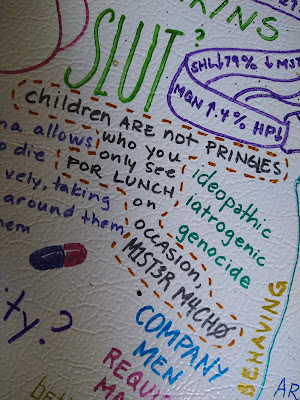 KINS
SLUT?
SHL↓79% ↓MST
MGN ↑.4% HPS
children ARE not PRINGLES
who you
only see
FOR LUNCH
on
occasion,
M1ST3R M4CHØ
na allows
o die
vely, taking
around them
hem
ideopathic
iatrogenic
genocide
ty?
COMPANY
MEN
REQUI
MA
BEHAVING
AR